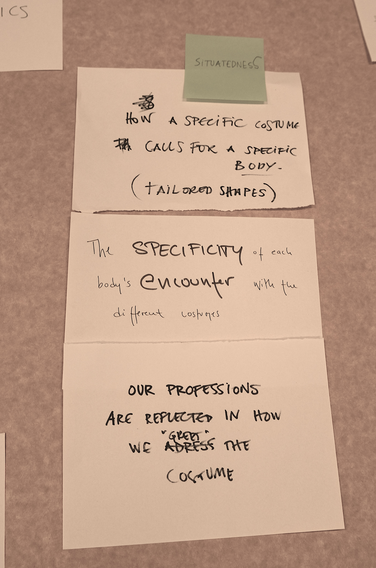 ICS
SITUATEDNESS
HOW A SPECIFIC COSTUME
CALLS FOR A SPECIFIC
BODY.
(TAILORED SHAPES)
The SPECIFICITY of each
body's encounter with the
different costumes
OUR PROFESSIONS
ARE REFLECTED IN HOW
"GREET"
WE ADRESS THE
COSTUME